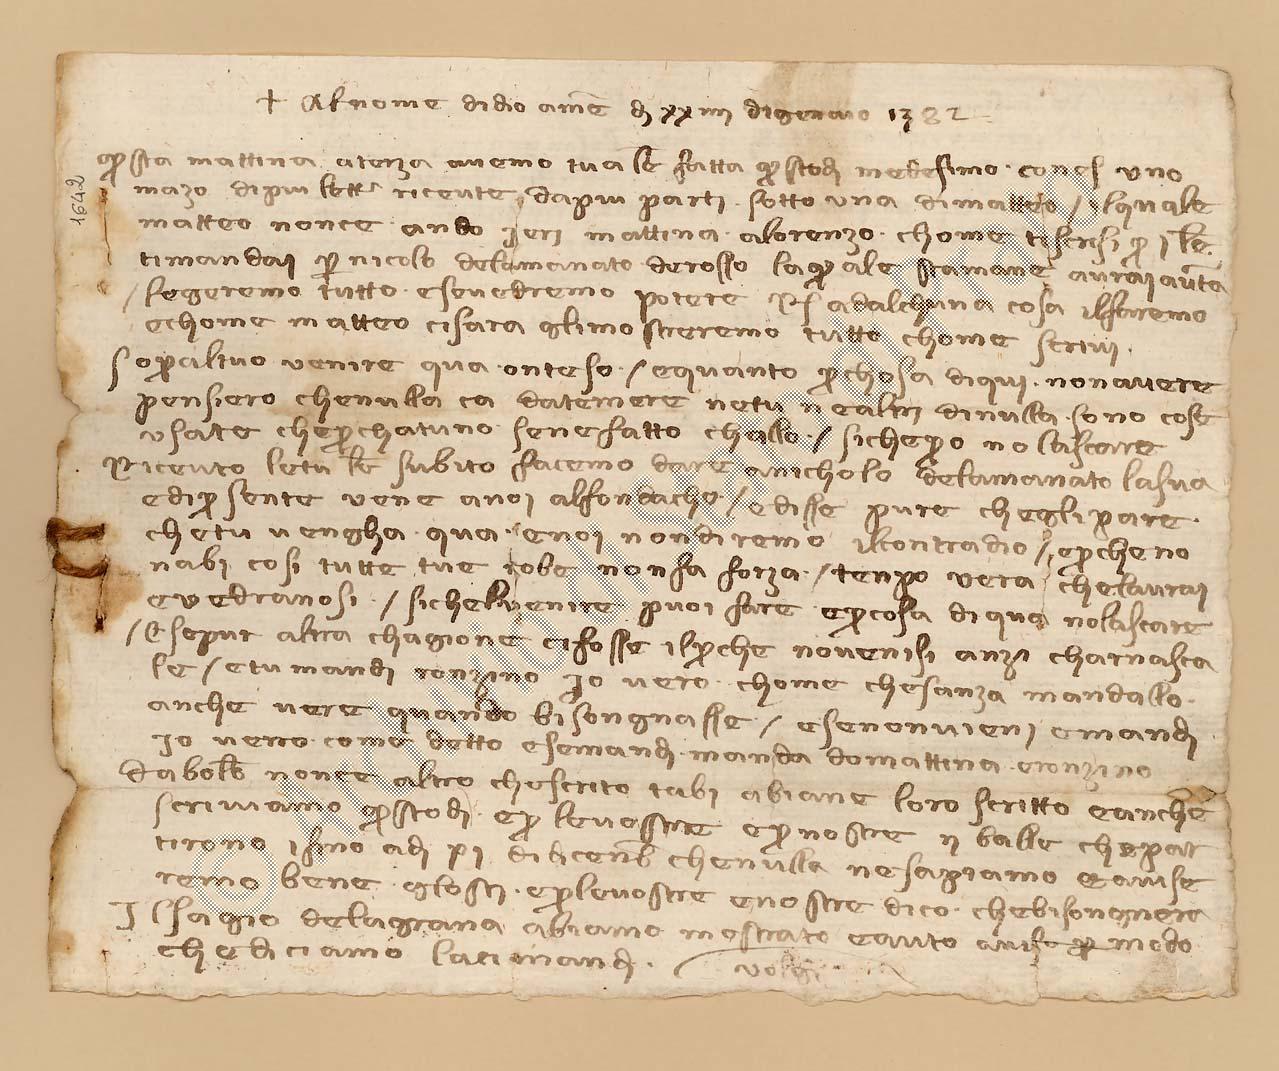 + Al nome di dio amē dj xxiiij di gennaio 1382
qsta mattina a terza avemo tua lē fatta qsto dj medesimo con es uno
mazo di piu lettē ricevute da piu parti sotto una di matteo / il quale
matteo nonce ando jeri mattina a lorenzo chome ti scrisi p i lē
ti mandaj p nicolo delamanato de rosso la quale stamane avraj avuta
/ legeremo tutto e se vedremo potere Rs ad alchuna cosa il faremo
e chome matteo ci sara gli mostreremo tutto chome scrivi.
Sopra al tuo venire qua o nteso / e quanto p chosa di qui non avere
pensiero che nulla ca da temere ne tu ne altrj di nulla sono cose
usate che p chatuno se ne fatto chaso / siche pero no lasciare
Ricevuto le tu lē subito facemo dare a nicholo delamanato la sua
e di psente vene a noi al fondacho / e disse pure che gli pare
che tu vengha qua e noi non diremo il contradio / e p che no
nabi cosi tutte tue robe non fa forza / tenpo vera che l avrai
e vedranosi / siche l venire puoi fare e p cosa di qua no lasciare
/ E se pur altra chagione ci fosse il p che no venisi anzi charnasca
le / e tu mandi ronzino Jo vero chome che sanza mandallo
anche vere quando bisongnasse / e se non vieni e mandj
Io verro como detto e se mandj manda domattina e ronzino
Da bolō nonce altro che scrito tabi abiane loro scritto e anche
scriviamo qsto dj e p le vostre e p nostre ij balle che par
tirono isino a dj xj di dicenb che nulla ne sapiamo e avise
remo bene glostj e p le vostre e nostre dico che bisongnera
Il sagio dela grana abiamo mostrato e auto aviso p modo
che diciamo la ci mandj.
volgi
1642